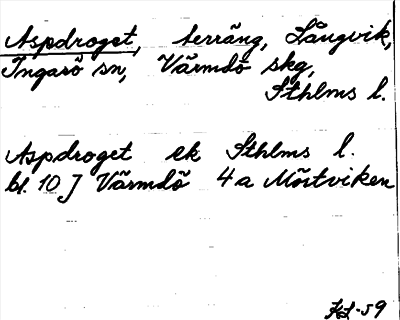 Aspdroget, terräng, Långvik,
Ingarö sn, Värmdö skg,
Sthlms l.
Aspdroget ek Sthlms l.
bl. 10 J Värmdö 4a Mörtviken
KL-59